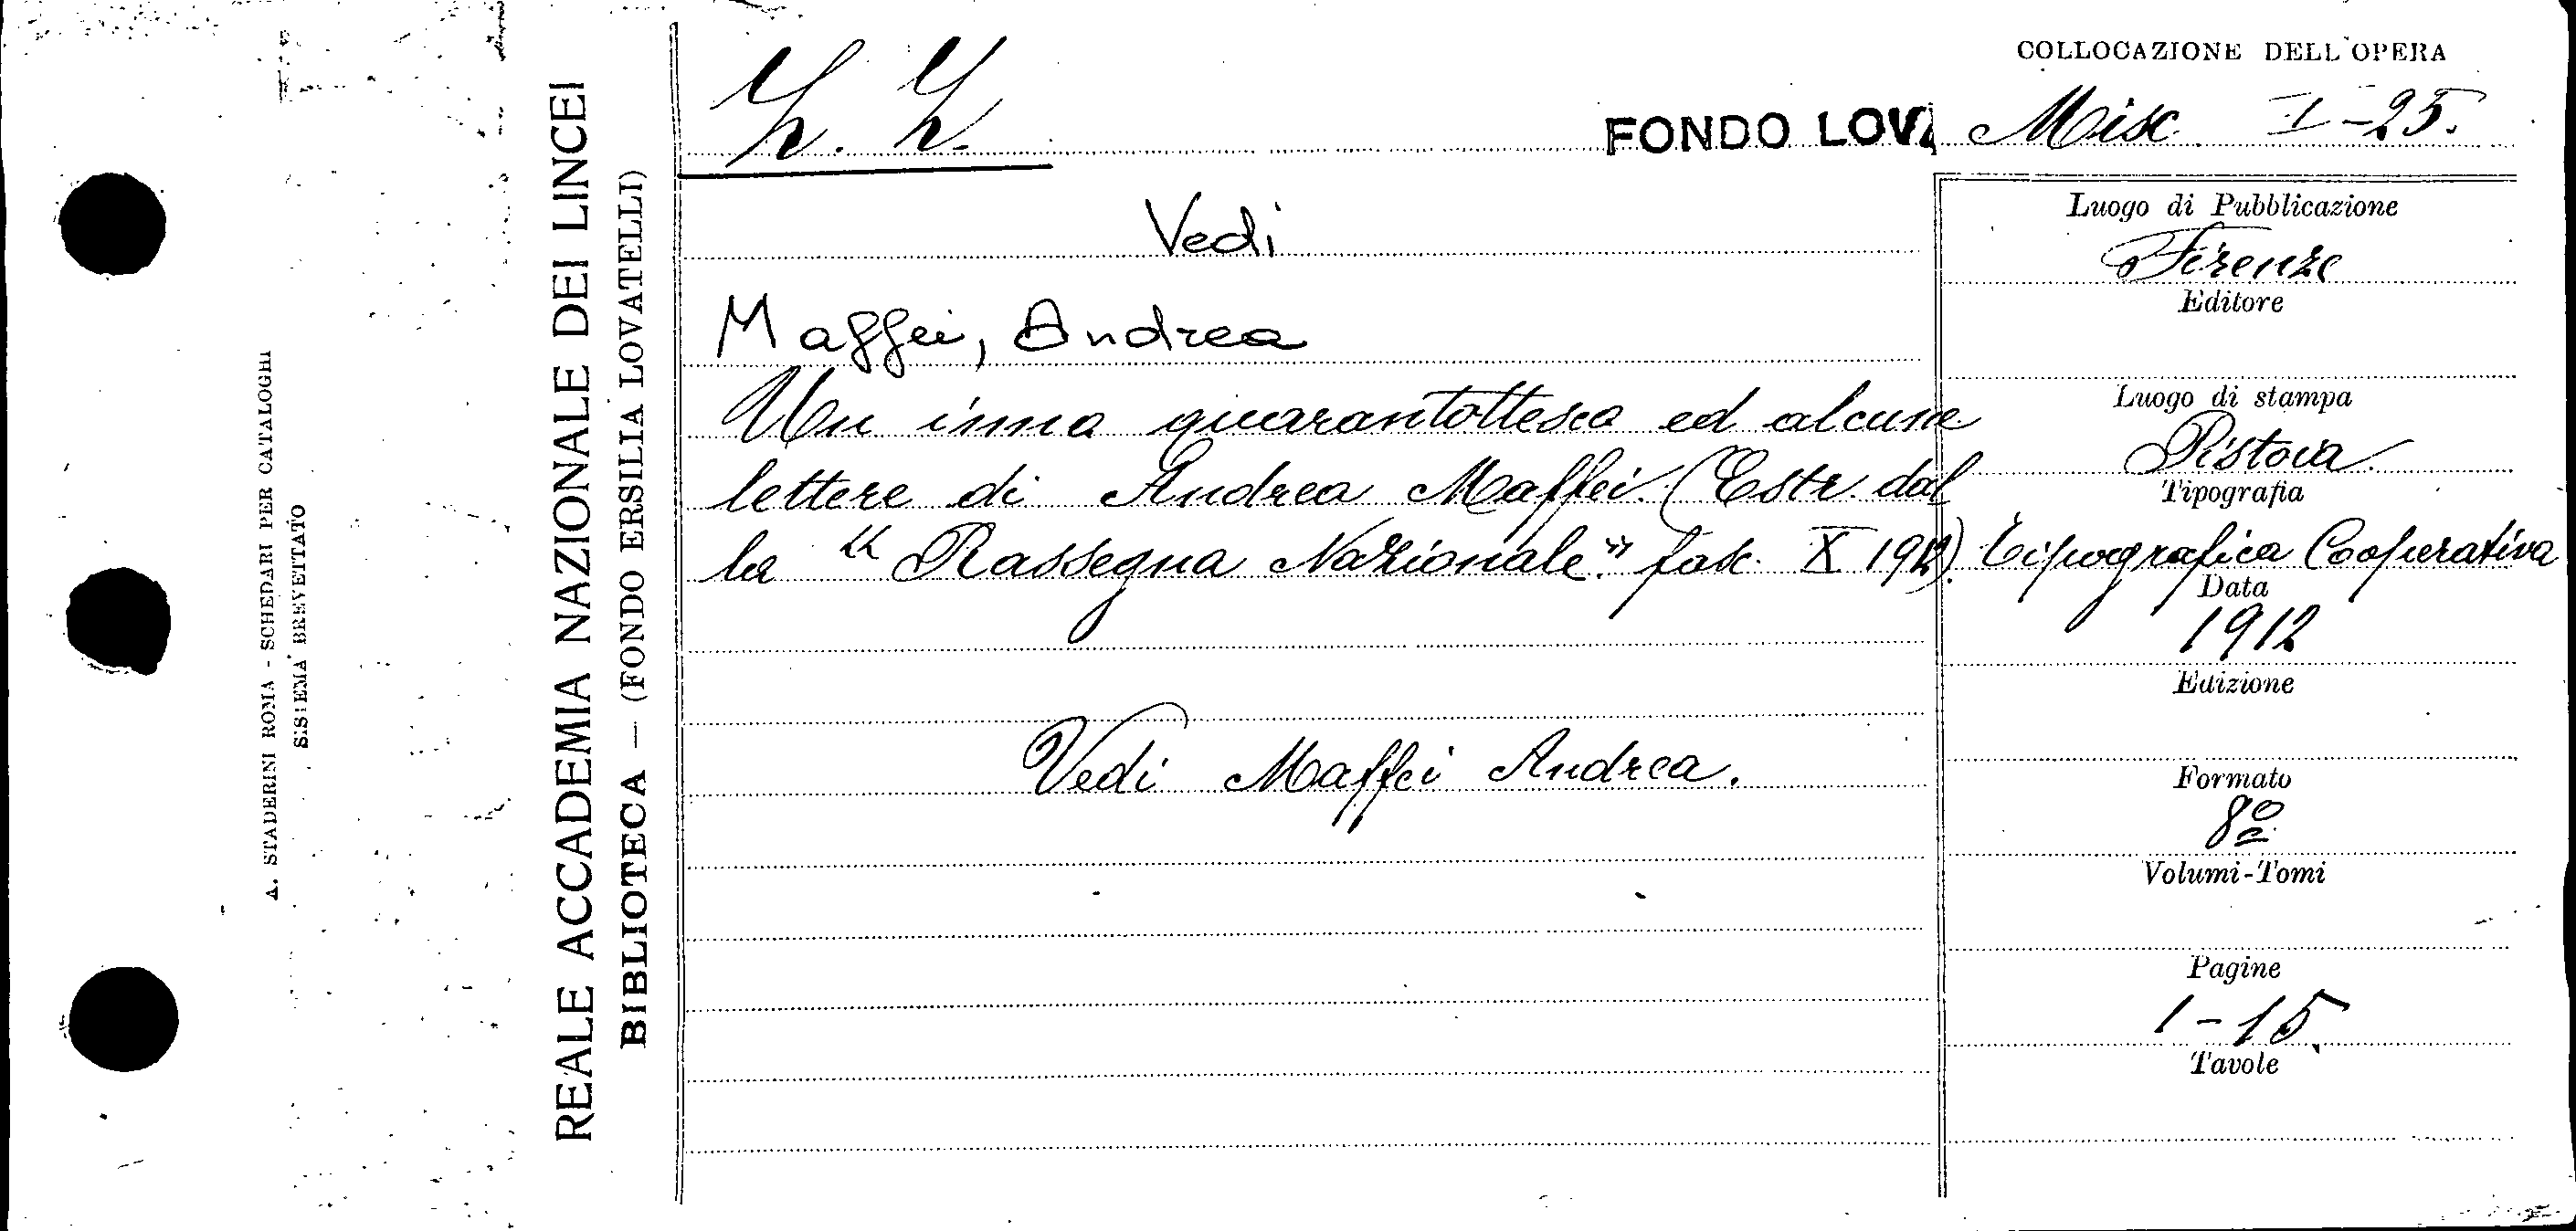 COLLOCAZIONE DELL'OPERA
FONDO LOVA
Misc. I-25.
Vedi
Maffei, Andrea
Un inno quarantottesco ed alcune
lettere di Andrea Maffei. (Estr. dal
la "Rassegna Nazionale." fasc. X 1912).
Vedi Maffei Andrea.
Luogo di Pubblicazione
Firenze
Editore
Luogo di stampa
Pistoia
Tipografia
Tipografica Cooperativa
Data
1912
Edizione
Formato
8º
Volumi-Tomi
Pagine
1-15
Tavole
REALE ACCADEMIA NAZIONALE DEI LINCEI
BIBLIOTECA — (FONDO ERSILIA LOVATELLI)
A. STADERINI ROMA - SCHEDARI PER CATALOGHI
SISTEMA BREVETTATO